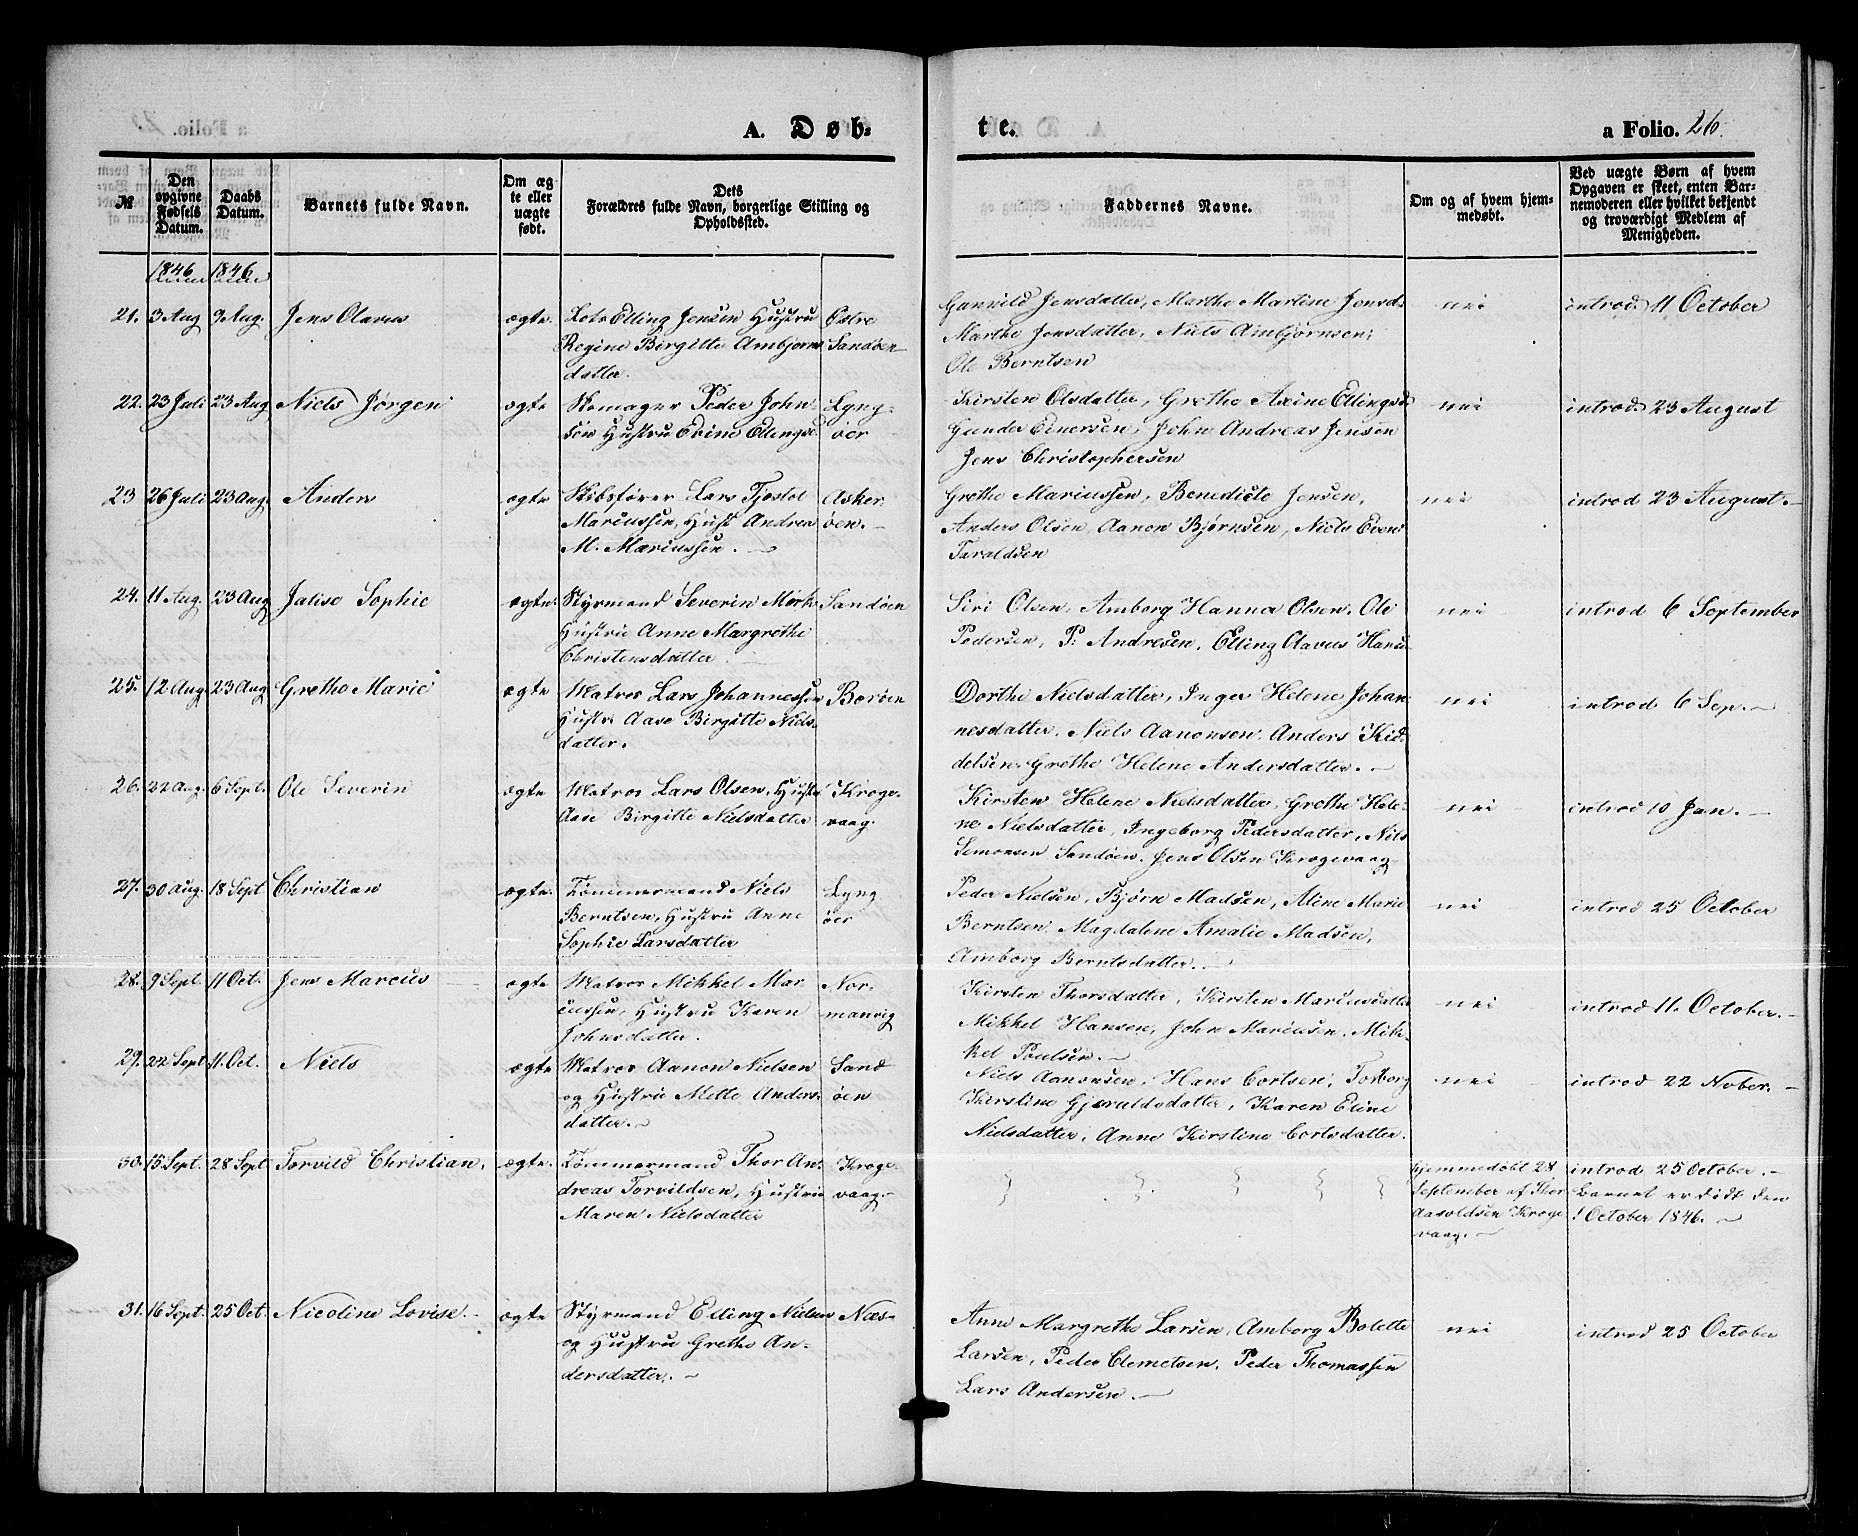 A. Døb-
te.
a Folio. 26.
№
Den opgivne Fødsels Datum.
Daabs Datum.
Barnets fulde Navn.
Om ægte eller uægte født.
Dets Forældres fulde Navn, borgerlige Stilling og Opholdssted.
Faddernes Navne.
Om og af hvem hjemmedøbt.
Ved uægte Børn af hvem Opgaven er skeet, enten Barnemoderen eller hvilket bekjendt og troværdigt Medlem af Menigheden.
1846 1846
21. 3 Aug 9 Aug. Jens Olavus ægte. Lots Elling Jensen Hustru Østre
Regine Birgitte Ambjørns Sandøen
datter.
Gunnild Jensdatter, Marthe Martine Jensd.
Marthe Jensdatter, Niels Ambjørnsen,
Ole Berntsen
nei
introd. 11 October
22. 23 Juli 23 Aug Niels Jørgen ægte Skomager Peder John Lyng-
sen Hustru Edine Ellingsd. öer
Kirsten Olsdatter, Grethe Axine Ellingsd.
Gunder Einersen, John Andreas Jensen
Jens Christophersen
nei
introd. 23 August
23 26 Juli 23 Aug. Anders ægte Skibsfører Lars Tjøstol Asker
Mariussen, Hust Andrea öen.
M. Mariussen.
Grethe Mariussen, Benedicte Jensen,
Anders Olsen, Aanon Bjørnsen, Niels Even
Taraldsen
nei
introd 23 August.
24. 11 Aug. 23 Aug Jalise Sophie ægte. Styrmand Severin Mørk Sandøen
Hustru Anne Margrethe
Christensdatter
Siri Olsen, Amborg Hanna Olsen, Ole
Pedersen, P. Andresen, Elling Olavus Hans
nei
introd 6 September
25. 12 Aug 23 Aug Grethe Marie ægte Matros Lars Johannessen Borøen
Hustr. Aase Birgitte Niels-
datter.
Dorthe Nielsdatter, Inger Helene Johan
nesdatter, Niels Aanonsen, Anders Kid-
delsen, Grethe Helene Andersdatter.
nei
introd 6 Sep.
26. 22 Aug. 6 Sept. Ole Severin ægte Matros Lars Olsen, Hustru Kroge-
Aase Birgitte Nielsdatter vaag.
Kirsten Helene Nielsdatter, Grethe Hele-
ne Nielsdatter, Ingeborg Pedersdatter, Nils
Simonsen Sandøen, Jens Olsen Krogevaag
nei
introd 10 Jan.
27. 30 Aug. 18 Sept Christian ægte. Tømmermand Niels Lyng
Berntsen, Hustru Anne öer
Sophie Larsdatter
Peder Nielsen, Bjørn Madsen, Aline Marie
Berntsen, Magdalene Amalie Madsen,
Amborg Berntsdatter.
nei
introd 25 October
28. 9 Sept. 11 Oct. Jens Marcus ægte Matros Mikkel Mar Nor-
cussen, Hustru Karen manvig
Johnsdatter.
Kirsten Thorsdatter, Kirsten Marcusdatter
Mikkel Hansen, John Mariusen, Mik-
kel Poulsen.
nei
introd 11. October.
29. 22 Sept 11. Oct. Niels ægte Matros Aanon Nielsen Sand
og Hustru Mette Anders. öen
datter.
Niels Aanonsen, Hans Cortsen, Torborg
Kirstine Gjeruldsdatter, Karen Eline
Nielsdatter, Anne Kirstine Cortsdatter.
nei
introd 22 Nober.
30. 15 Sept. 28 Sept Torvild Christian. ægte. Tømmermand Thor An- Kroge-
dreas Torvildsen, Hustru vaag.
Maren Nielsdatter
hjemmedøbt 28
September af Thor
Aasoldsen Kroge
vaag.
introd 25 October.
Barnet er dödt den
1 October 1846.
31. 16 Sept. 25 Oct. Nicoline Lovise. ægte Styrmand Elling Nielsen Næs
og Hustru Grethe An-
dersdatter.
Anne Margrethe Larsen, Amborg Bolette
Larsen, Peder Clemetsen, Peder Thomassen
Lars Andersen.
nei
introd 25 October